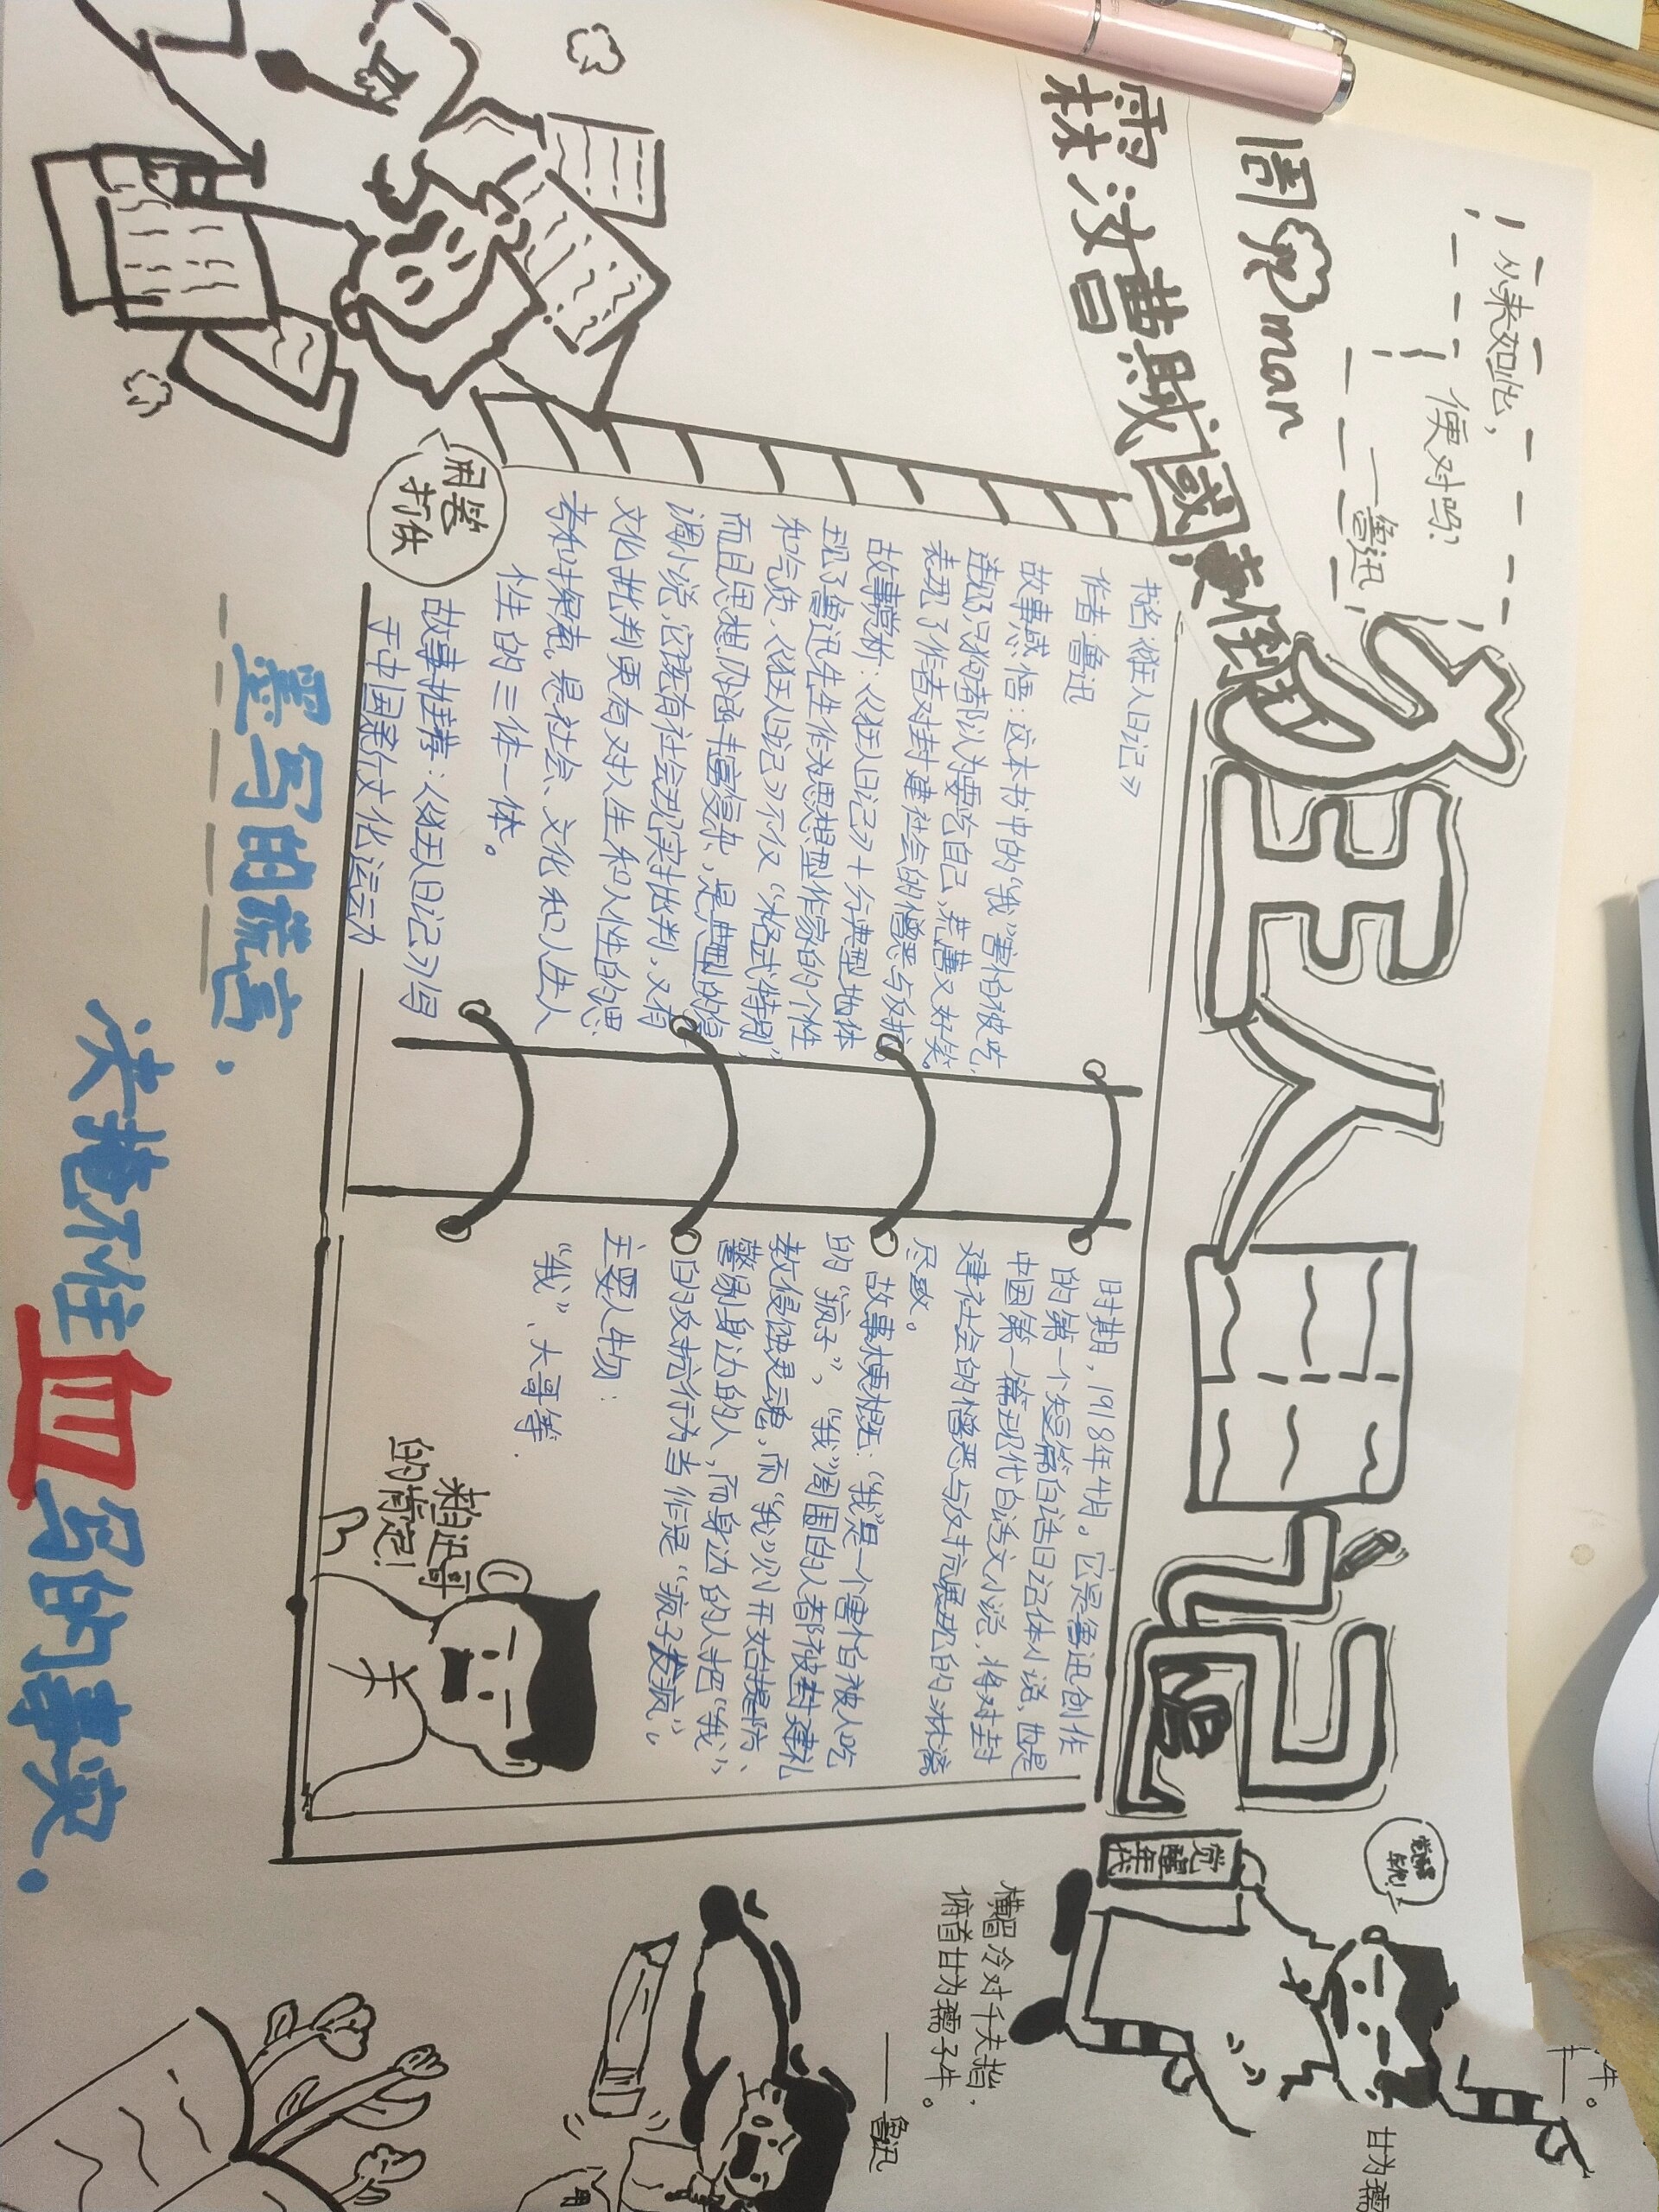 从来如此，
便对吗？
——鲁迅
狂人日记
周树man
书名:《狂人日记》
作者:鲁迅
故事感悟：这本书中的“我”害怕被吃，
连现只狗都认为要吃自己，荒舊又好笑。
表现了作者对封建社会的憎恶与反抗。
故事赏析：《狂人日记》十分典型地体
现了鲁迅先生作为思想型作家的个性
和气质，《狂人日记》不仅“格式特别”，
而且思想内涵丰富复杂，是典型的复
调小说，它既有社会现实批判，又有
文化批判更有对人生和人性的思
考和探索，是社会、文化和人生人
性的三体一体。
故事推荐：《狂人日记》写
于中国新文化运动
时期，1918年4月。它是鲁迅创作
的第一个短篇白话日记体小说，也是
中国第一篇现代白话文小说，将对封
建社会的憎恶与反抗展现的淋漓
尽致。
故事梗概：“我”是一个害怕被人吃
的“疯子”，“我”周围的人都被封建礼
教侵蚀灵魂，而“我”则开始提防、
警惕身边的人，而身边的人把“我”
的反抗行为当作是“疯子发疯”。
主要人物：
“我”、大哥等.
来自迅哥
的肯定！
用笔
打仗
觉醒
年代！
觉醒
年代
横眉冷对千夫指，
俯首甘为孺子牛。
——鲁迅
牛。
甘为孺
墨写的谎言，
决掩不住血写的事实.